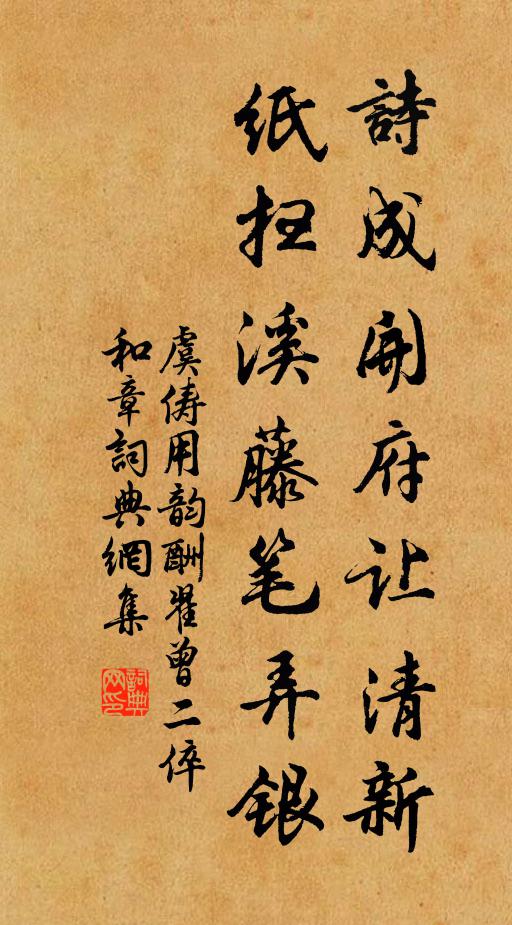 詩成開府让清新
紙扫溪藤笔弄银
虞俦用韵酬翟曾二倅
和章詞典網集
詞典网印